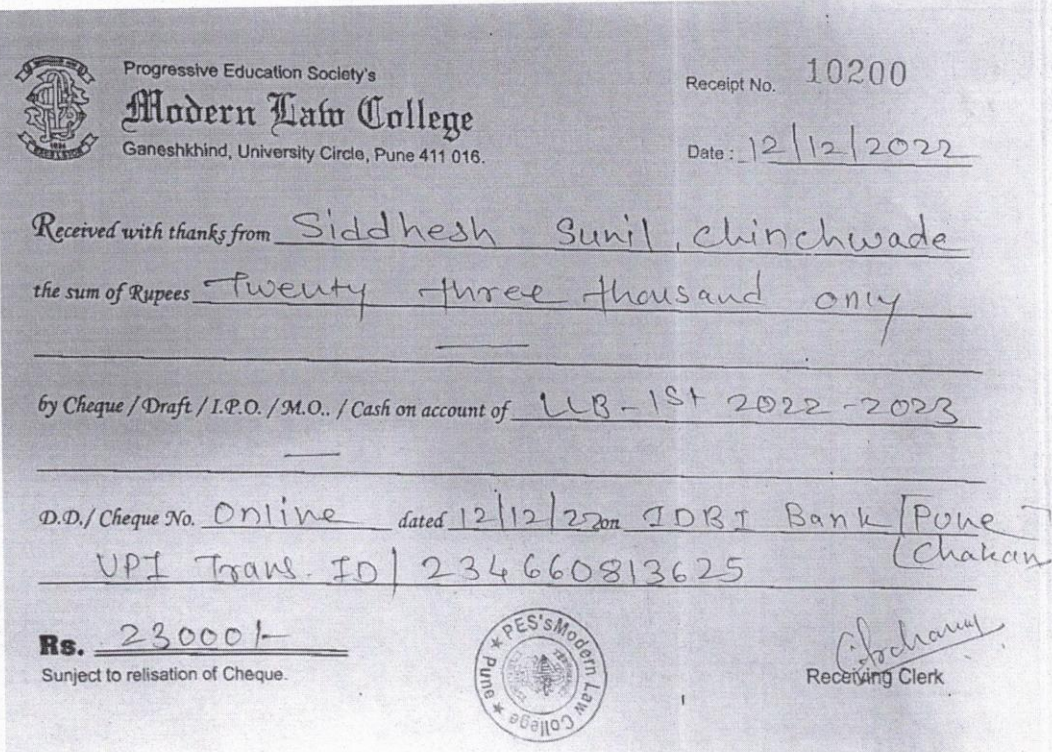 Progressive Education Society's
Modern Law College
Ganeshkhind, University Circle, Pune 411 016.
Receipt No. 10200
Date : 12/12/2022
Received with thanks from Siddhesh Sunil, Chinchwade
the sum of Rupees Twenty three thousand only
by Cheque / Draft / I.P.O. / M.O.. / Cash on account of LLB - 1st 2022 - 2023
D.D./ Cheque No. Online dated 12/12/22 on IDBI Bank Pune
Chakan
UPI Trans. ID / 234660813625
Rs. 23000/-
Sunject to relisation of Cheque.
PES's Modern Law College ★ Pune ★
Receiving Clerk